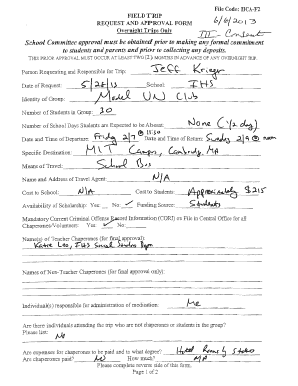 File Code: IJOA-F2
FIELD TRIP
REQUEST AND APPROVAL FORM
Overnight Trips Only
6/6/2013
III - Consent
School Committee approval must be obtained prior to making any formal commitment
to students and parents and prior to collecting any deposits.
THIS PRIOR APPROVAL MUST OCCUR AT LEAST TWO (2) MONTHS IN ADVANCE OF ANY OVERNIGHT TRIP.
Person Requesting and Responsible for Trip: Jeff Krieger
Date of Request: 5/28/13 School: IHS
Identity of Group: Model UN Club
Number of Students in Group: 20
Number of School Days Students are Expected to be Absent: None (1/2 day)
Date and Time of Departure: Friday 2/7 @ 11:30 Date and Time of Return: Sunday 2/9 @ noon
Specific Destination: MIT Campus, Cambridge, MA
Means of Travel: School Bus
Name and Address of Travel Agent: N/A
Cost to School: N/A Cost to Students: Approximately $215
Availability of Scholarship: Yes No Funding Source: Students
Mandatory Current Criminal Offense Record Information (CORI) on File in Central Office for all
Chaperones/Volunteer: Yes No
Name(s) of Teacher Chaperones (for final approval):
Katie Leo, IHS Social Studies
Names of Non-Teacher Chaperones (for final approval only):
Individual(s) responsible for administration of medication: Me
Are there individuals attending the trip who are not chaperones or students in the group?
Please list: No
Are expenses for chaperones to be paid and to what degree: Hotel Room by
Are chaperones paid? No How much?
Please complete reverse side of this form.
Page 1 of 2